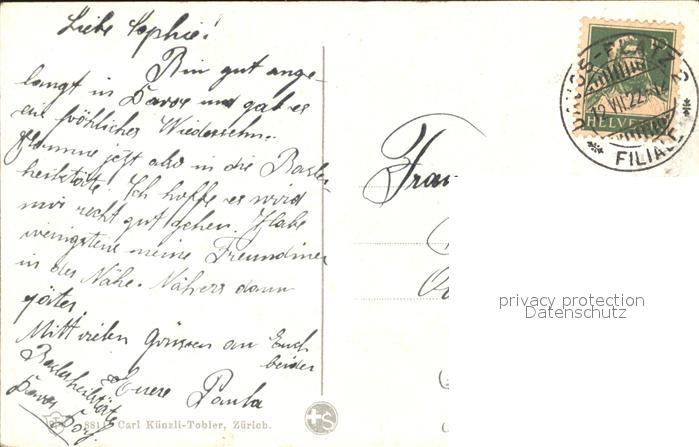 Liebe Sophie!
Bin gut ange-
langt in Davos und gab es
ein fröhliches Wiedersehn.
Komme jetzt also in die Basler-
heilstätte. Ich hoffe es wird
mir recht gut gehen. Habe
wenigstens meine Freundinen
in der Nähe. Näheres dann
später.
Mitt vielen Grüssen an Euch
beiden
Euere Paula
Baslerheilstätte
Davos Dorf
Frau
DAVOS-PLATZ 2
12.VII.22
HELVETIA
FILIALE
privacy protection
Datenschutz
8811 Carl Künzli-Tobler, Zürich.